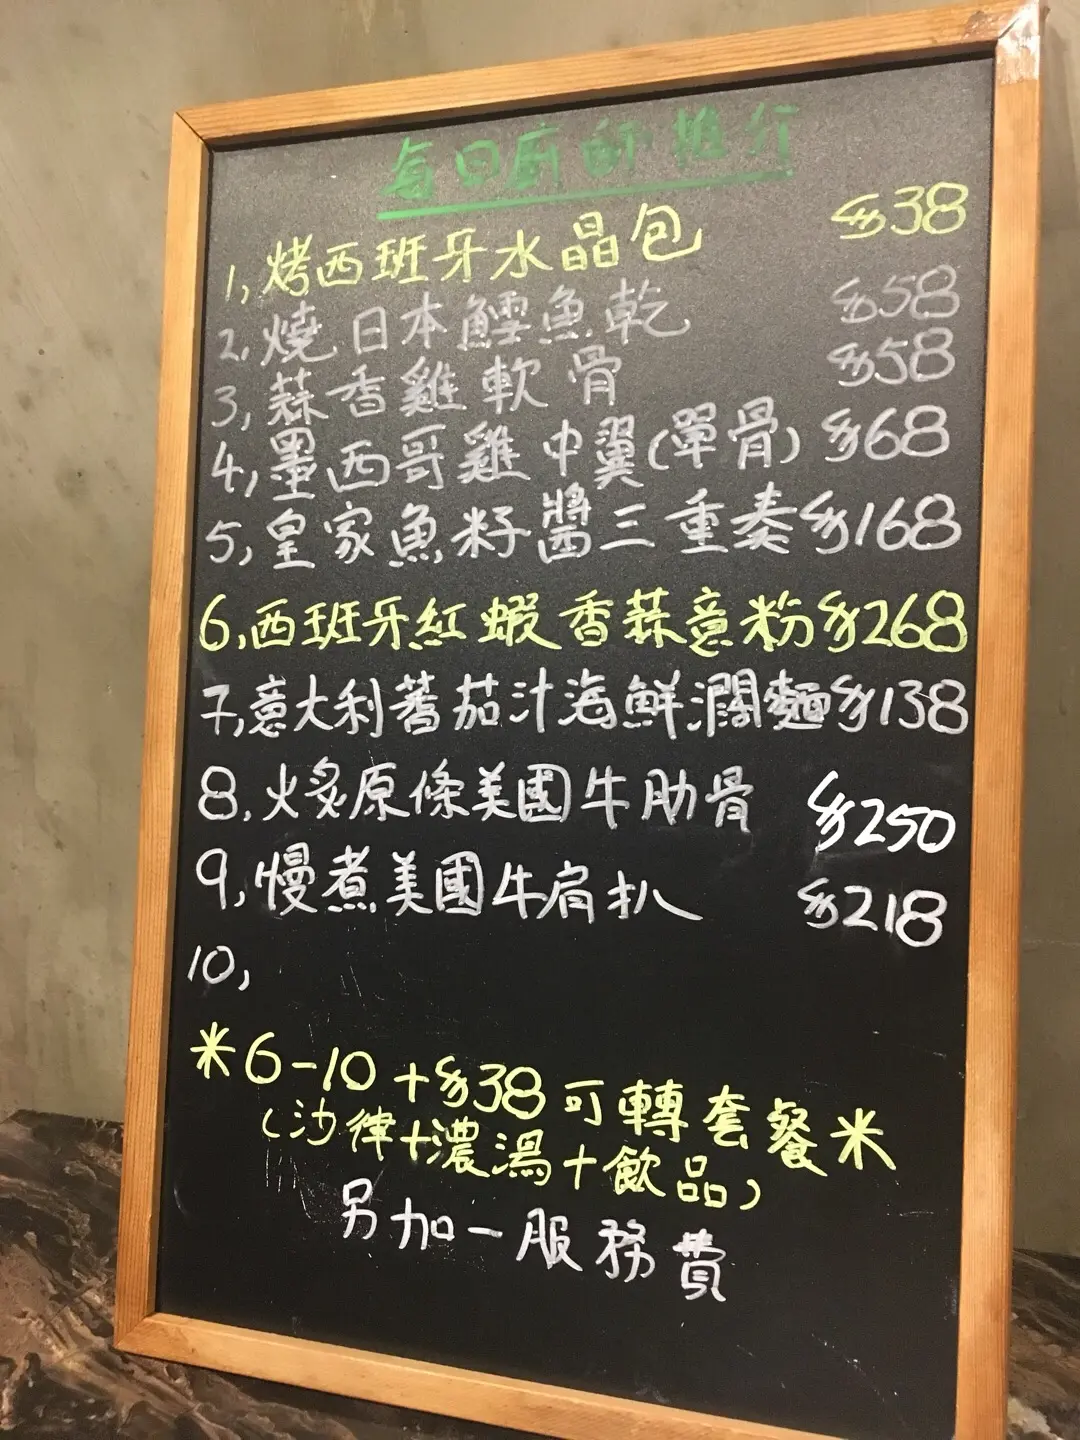 每日廚師推介
1, 烤西班牙水晶包 $38
2, 燒日本鱈魚乾 $58
3, 蒜香雞軟骨 $58
4, 墨西哥雞中翼(單骨) $68
5, 皇家魚籽醬三重奏 $168
6, 西班牙紅蝦香蒜意粉 $268
7, 意大利蕃茄汁海鮮濶麵 $138
8, 火炙原條美國牛肋骨 $250
9, 慢煮美國牛肩扒 $218
10,
米6-10+$38可轉套餐米
(沙律+濃湯+飲品)
另加一服務費